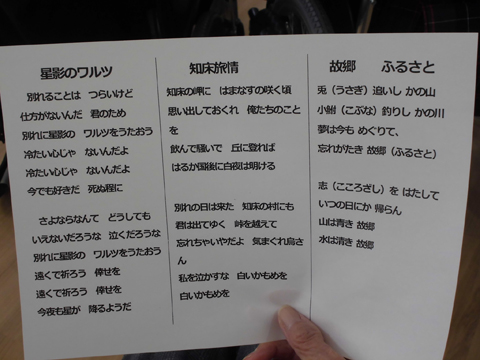 星影のワルツ
別れることは つらいけど
仕方がないんだ 君のため
別れに星影の ワルツをうたおう
冷たい心じゃ ないんだよ
冷たい心じゃ ないんだよ
今でも好きだ 死ぬ程に
さよならなんて どうしても
いえないだろうな 泣くだろうな
別れに星影の ワルツをうたおう
遠くで祈ろう 倖せを
遠くで祈ろう 倖せを
今夜も星が 降るようだ
知床旅情
知床の岬に はまなすの咲く頃
思い出しておくれ 俺たちのこと
を
飲んで騒いで 丘に登れば
はるか国後に白夜は明ける
別れの日は来た 知床の村にも
君は出てゆく 峠を越えて
忘れちゃいやだよ 気まぐれ烏さ
ん
私を泣かすな 白いかもめを
白いかもめを
故郷 ふるさと
兎（うさぎ）追いし かの山
小鮒（こぶな）釣りし かの川
夢は今も めぐりて、
忘れがたき 故郷（ふるさと）
志（こころざし）を はたして
いつの日にか 帰らん
山は青き 故郷
水は清き 故郷